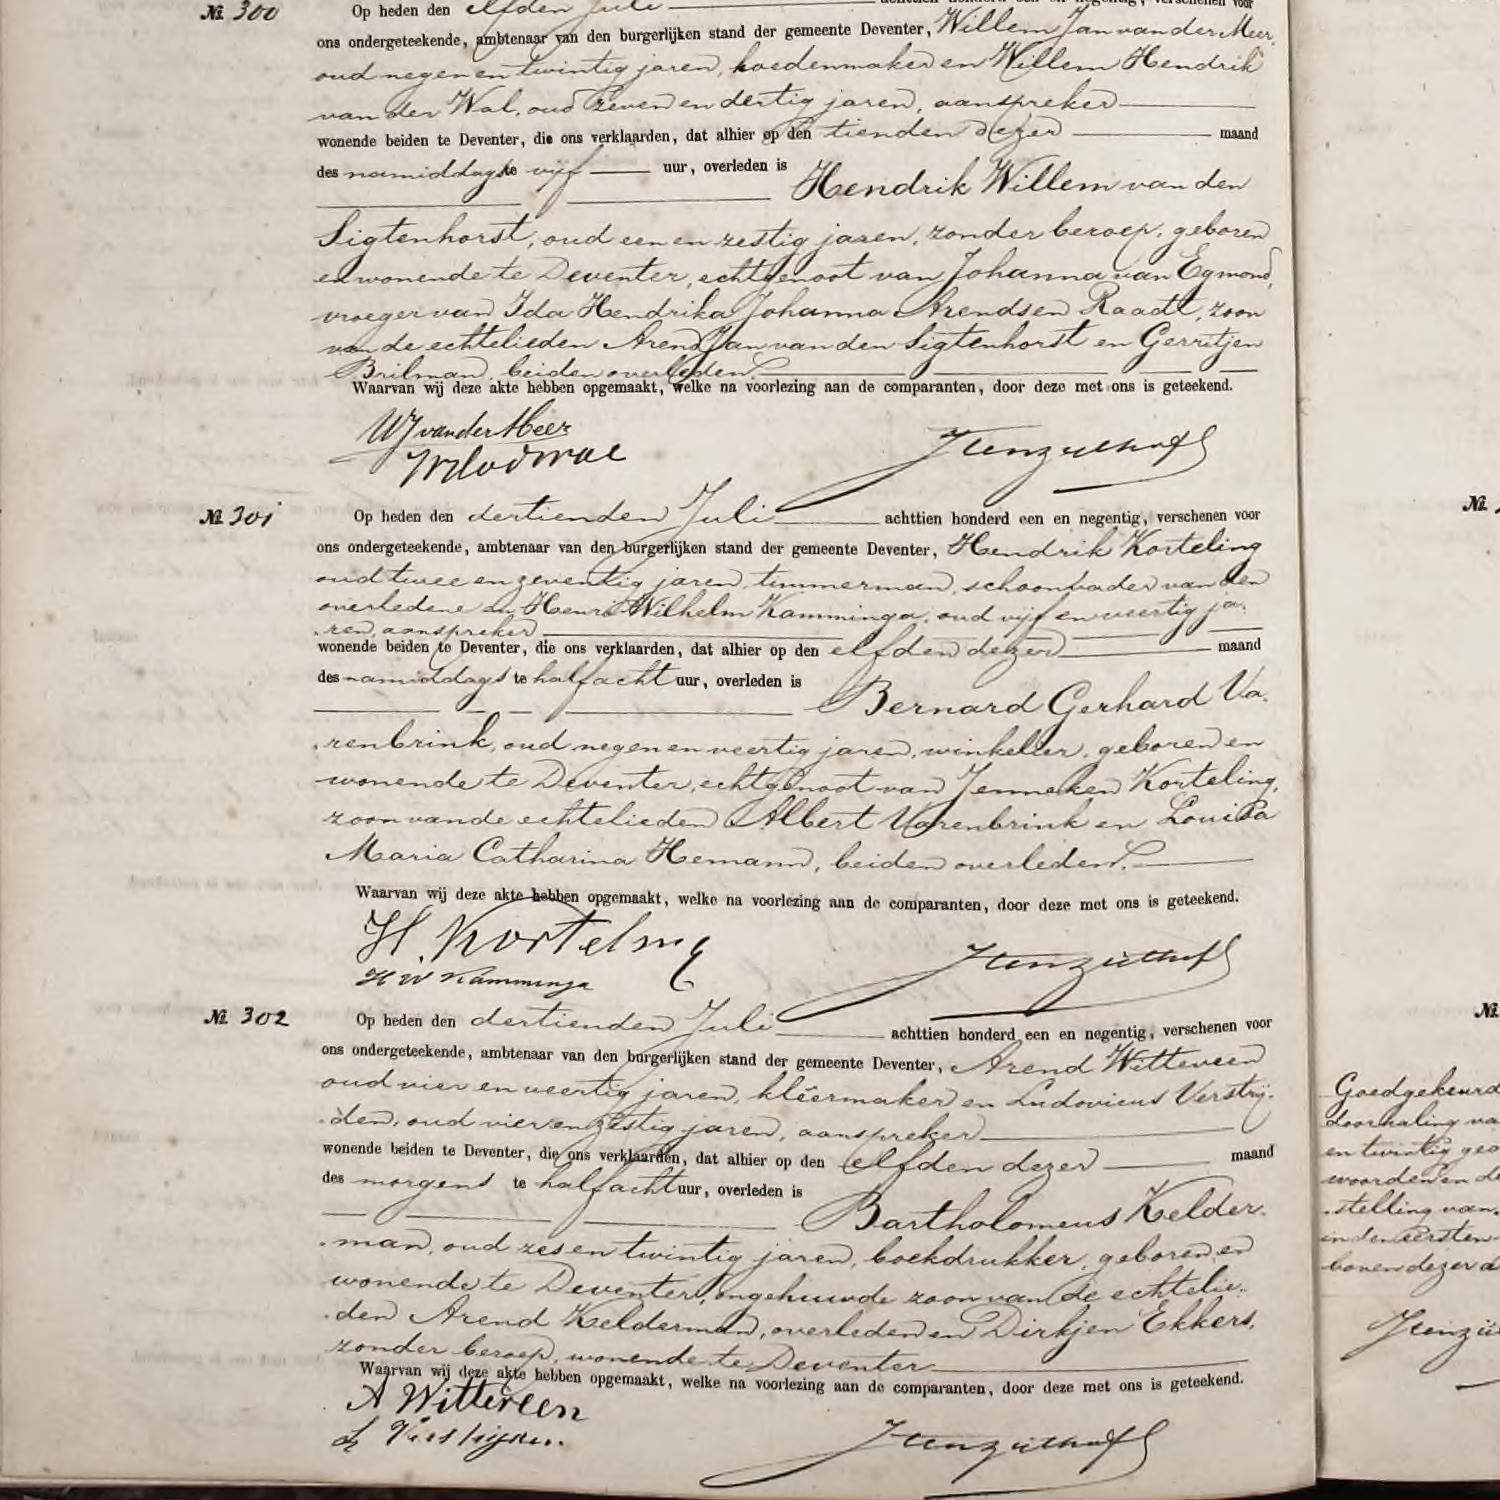 № 300 Op heden den elfden Juli achttien honderd een en negentig, verschenen voor
ons ondergeteekende, ambtenaar van den burgerlijken stand der gemeente Deventer, Willem Jan van der Meer,
oud negen en twintig jaren, hoedenmaker en Willem Hendrik
van der Wal, oud zeven en dertig jaren, aanspreker
wonende beiden te Deventer, die ons verklaarden, dat alhier op den tienden dezer maand
des namiddags te vijf uur, overleden is Hendrik Willem van den
Sigtenhorst, oud een en zestig jaren, zonder beroep, geboren
en wonende te Deventer, echtgenoot van Johanna van Egmond,
vroeger van Ida Hendrika Johanna Arendsen Raadt, zoon
van de echtelieden Arend Jan van den Sigtenhorst en Gerritjen
Brilman, beiden overleden.
Waarvan wij deze akte hebben opgemaakt, welke na voorlezing aan de comparanten, door deze met ons is geteekend.
WJ van der Meer
№ 301 Op heden den dertienden Juli achttien honderd een en negentig, verschenen voor
ons ondergeteekende, ambtenaar van den burgerlijken stand der gemeente Deventer, Hendrik Korteling
oud twee en zeventig jaren, timmerman, schoonvader van den
overledene en Henri Wilhelm Kamminga, oud vijf en veertig ja-
ren, aanspreker
wonende beiden te Deventer, die ons verklaarden, dat alhier op den elfden dezer maand
des namiddags te half acht uur, overleden is Bernard Gerhard Va-
renbrink, oud negen en veertig jaren, winkelier, geboren en
wonende te Deventer, echtgenoot van Jenneken Korteling,
zoon van de echtelieden Albert Varenbrink en Louisa
Maria Catharina Hemann, beiden overleden.
Waarvan wij deze akte hebben opgemaakt, welke na voorlezing aan de comparanten, door deze met ons is geteekend.
H. Korteling
H W Kamminga
№ 302 Op heden den dertienden Juli achttien honderd een en negentig, verschenen voor
ons ondergeteekende, ambtenaar van den burgerlijken stand der gemeente Deventer, Arend Witteveen
oud vier en veertig jaren, kleermaker en Ludovicus Verstrij-
den, oud vier en zestig jaren, aanspreker
wonende beiden te Deventer, die ons verklaarden, dat alhier op den elfden dezer maand
des morgens te half acht uur, overleden is Bartholomeus Kelder-
man, oud zes en twintig jaren, boekdrukker, geboren en
wonende te Deventer, ongehuwde zoon van de echtelie-
den Arend Kelderman, overleden en Dirkjen Ekkers,
zonder beroep, wonende te Deventer
Waarvan wij deze akte hebben opgemaakt, welke na voorlezing aan de comparanten, door deze met ons is geteekend.
A Witteveen
№
№
Goedgekeurd
doorhaling va
en twintig ge
woorden en de
stelling van
in den eersten
boven dezer a